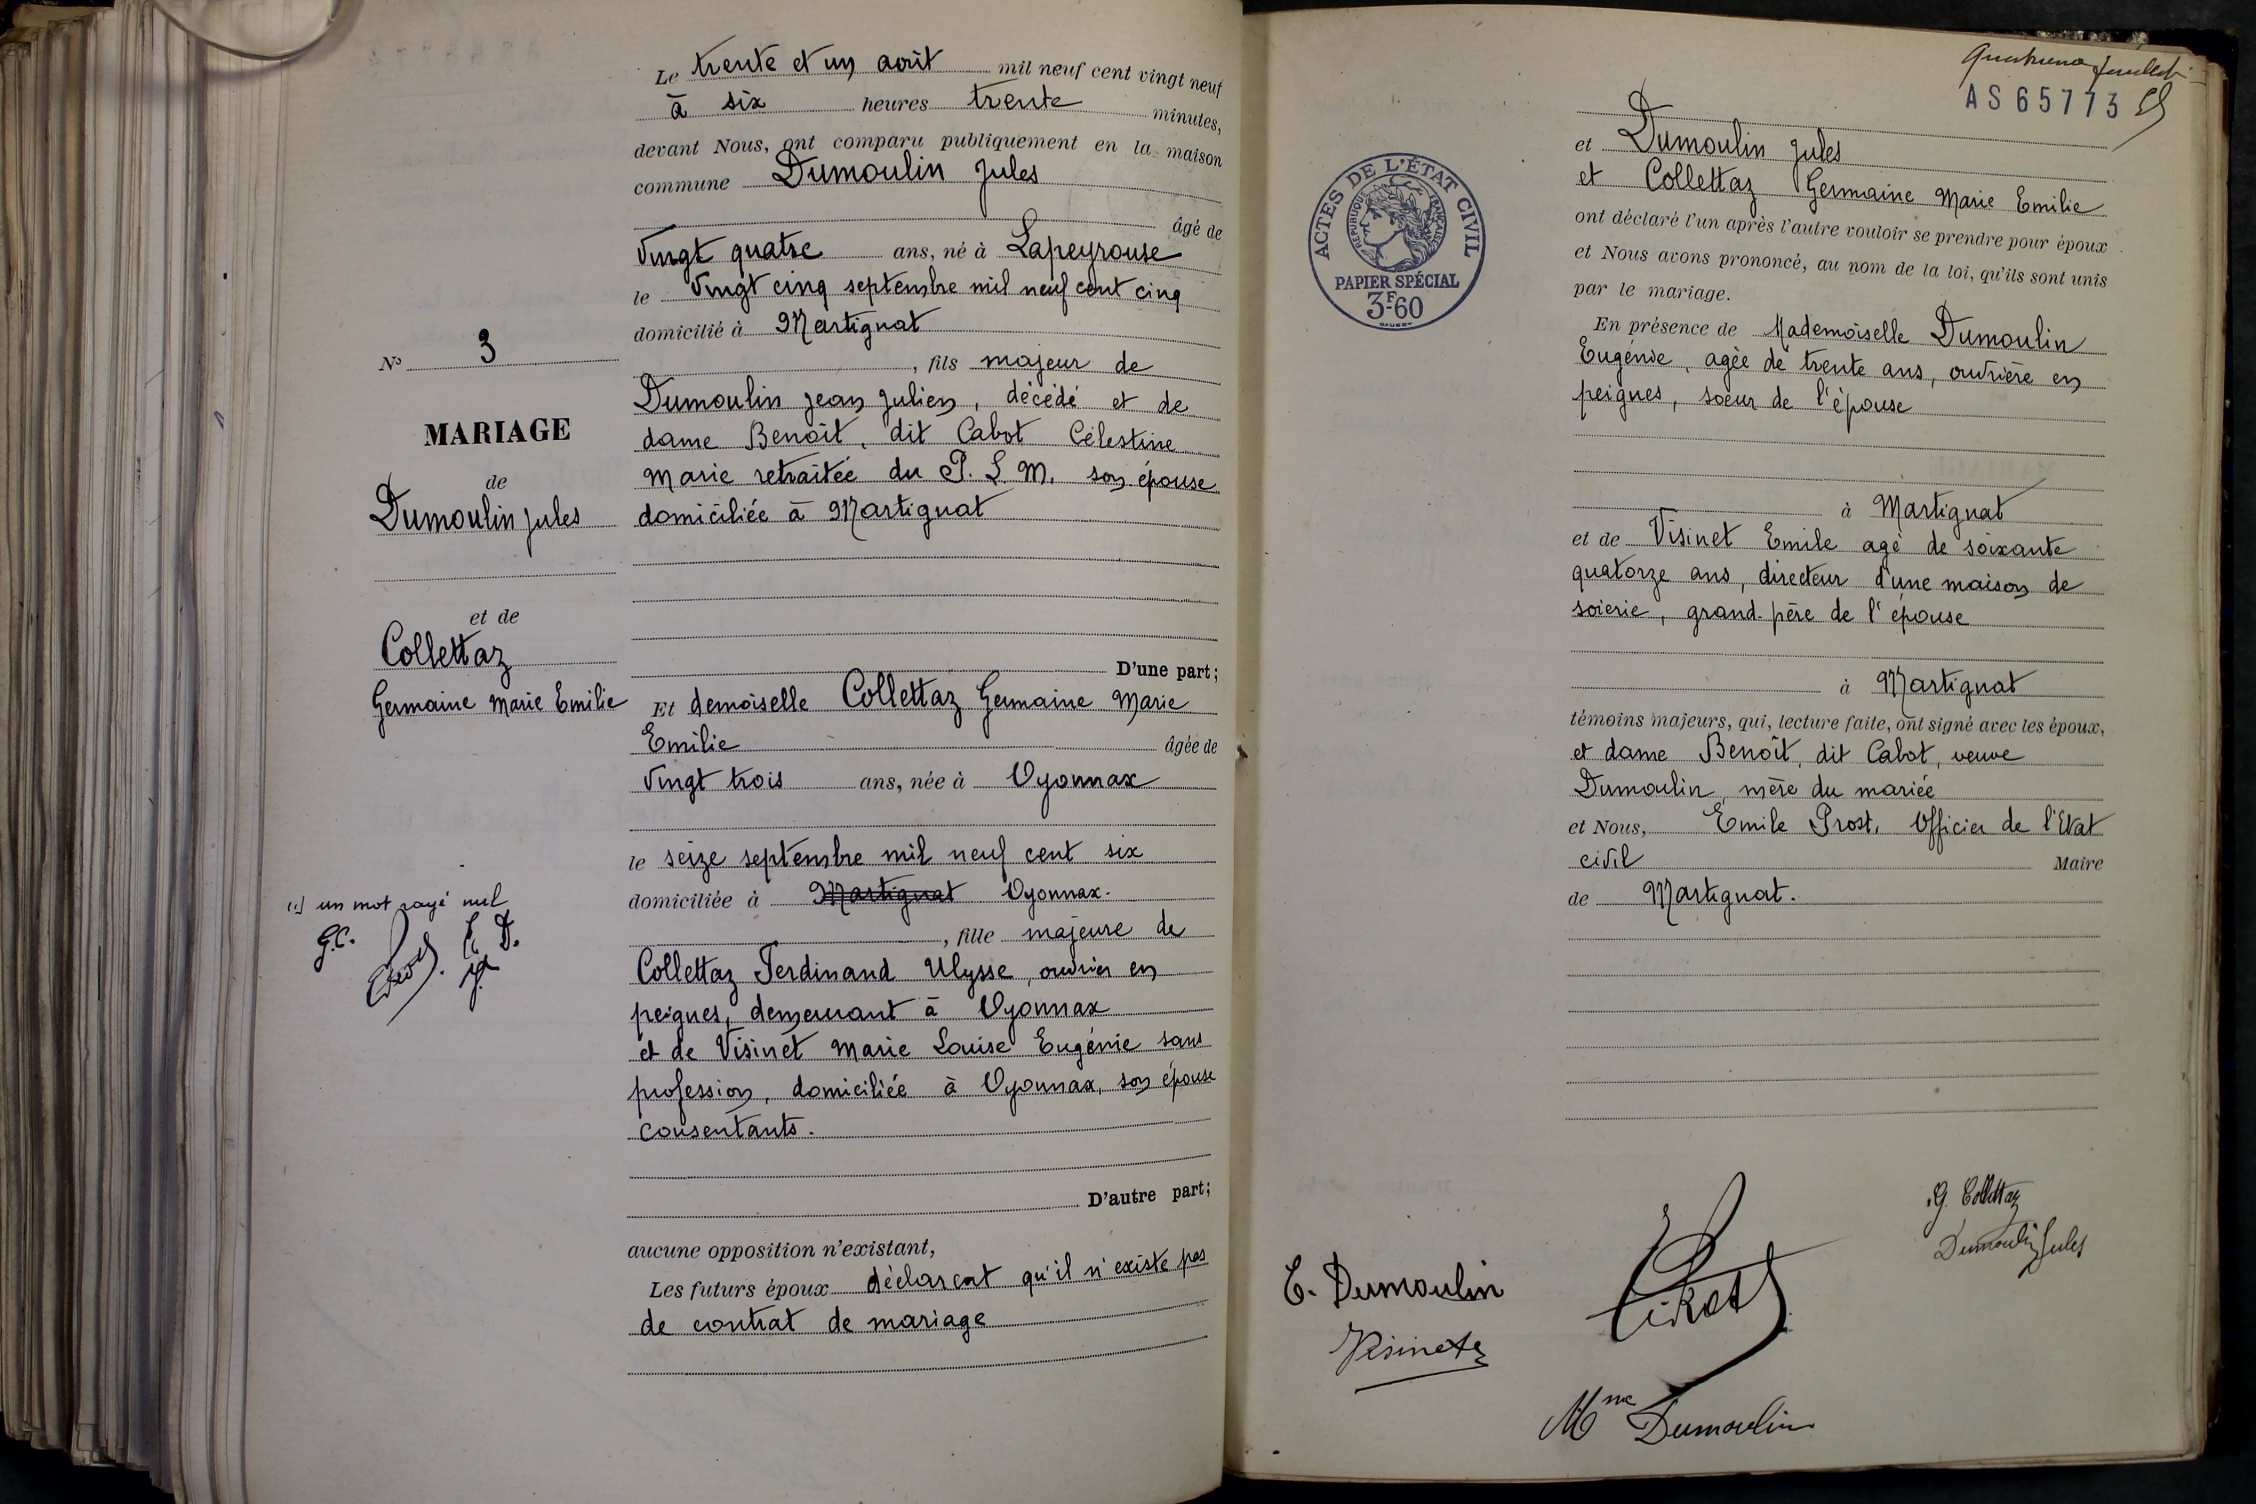 Le trente et un août mil neuf cent vingt neuf
à six heures trente minutes,
devant Nous, ont comparu publiquement en la maison
commune Dumoulin Jules
âgé de
vingt quatre ans, né à Lapeyrouse
le vingt cinq septembre mil neuf cent cinq
domicilié à Martignat
, fils majeur de
Dumoulin Jean Julien, décédé et de
dame Benoît, dit Cabot Célestine
Marie retraitée du P. L. M. son épouse
domiciliée à Martignat
D'une part;
Et demoiselle Collettaz Germaine Marie
Emilie âgée de
vingt trois ans, née à Oyonnax
le seize septembre mil neuf cent six
domiciliée à Martignat Oyonnax.
, fille majeure de
Collettaz Ferdinand Ulysse, ouvrier en
peignes, demeurant à Oyonnax
et de Visinet Marie Louise Eugénie sans
profession, domiciliée à Oyonnax, son épouse
consentants.
D'autre part;
aucune opposition n'existant,
Les futurs époux déclarent qu'il n'existe pas
de contrat de mariage
No 3
MARIAGE
de
Dumoulin Jules
et de
Collettaz
Germaine Marie Emilie
(1) un mot rayé nul
G.C. E. D.
AS65773
ACTES DE L'ÉTAT CIVIL
RÉPUBLIQUE FRANÇAISE
PAPIER SPÉCIAL
3F60
et Dumoulin Jules
et Collettaz Germaine Marie Emilie
ont déclaré l'un après l'autre vouloir se prendre pour époux
et Nous avons prononcé, au nom de la loi, qu'ils sont unis
par le mariage.
En présence de Mademoiselle Dumoulin
Eugénie, agée de trente ans, ouvrière en
peignes, soeur de l'épouse
à Martignat
et de Visinet Emile agé de soixante
quatorze ans, directeur d'une maison de
soierie, grand-père de l'épouse
à Martignat
témoins majeurs, qui, lecture faite, ont signé avec les époux,
et dame Benoît, dit Cabot, veuve
Dumoulin, mère du mariée
et Nous, Emile Prost, Officier de l'Etat
civil Maire
de Martignat.
G. Collettaz
Dumoulin Jules
E. Dumoulin
Visinet
Mme Dumoulin